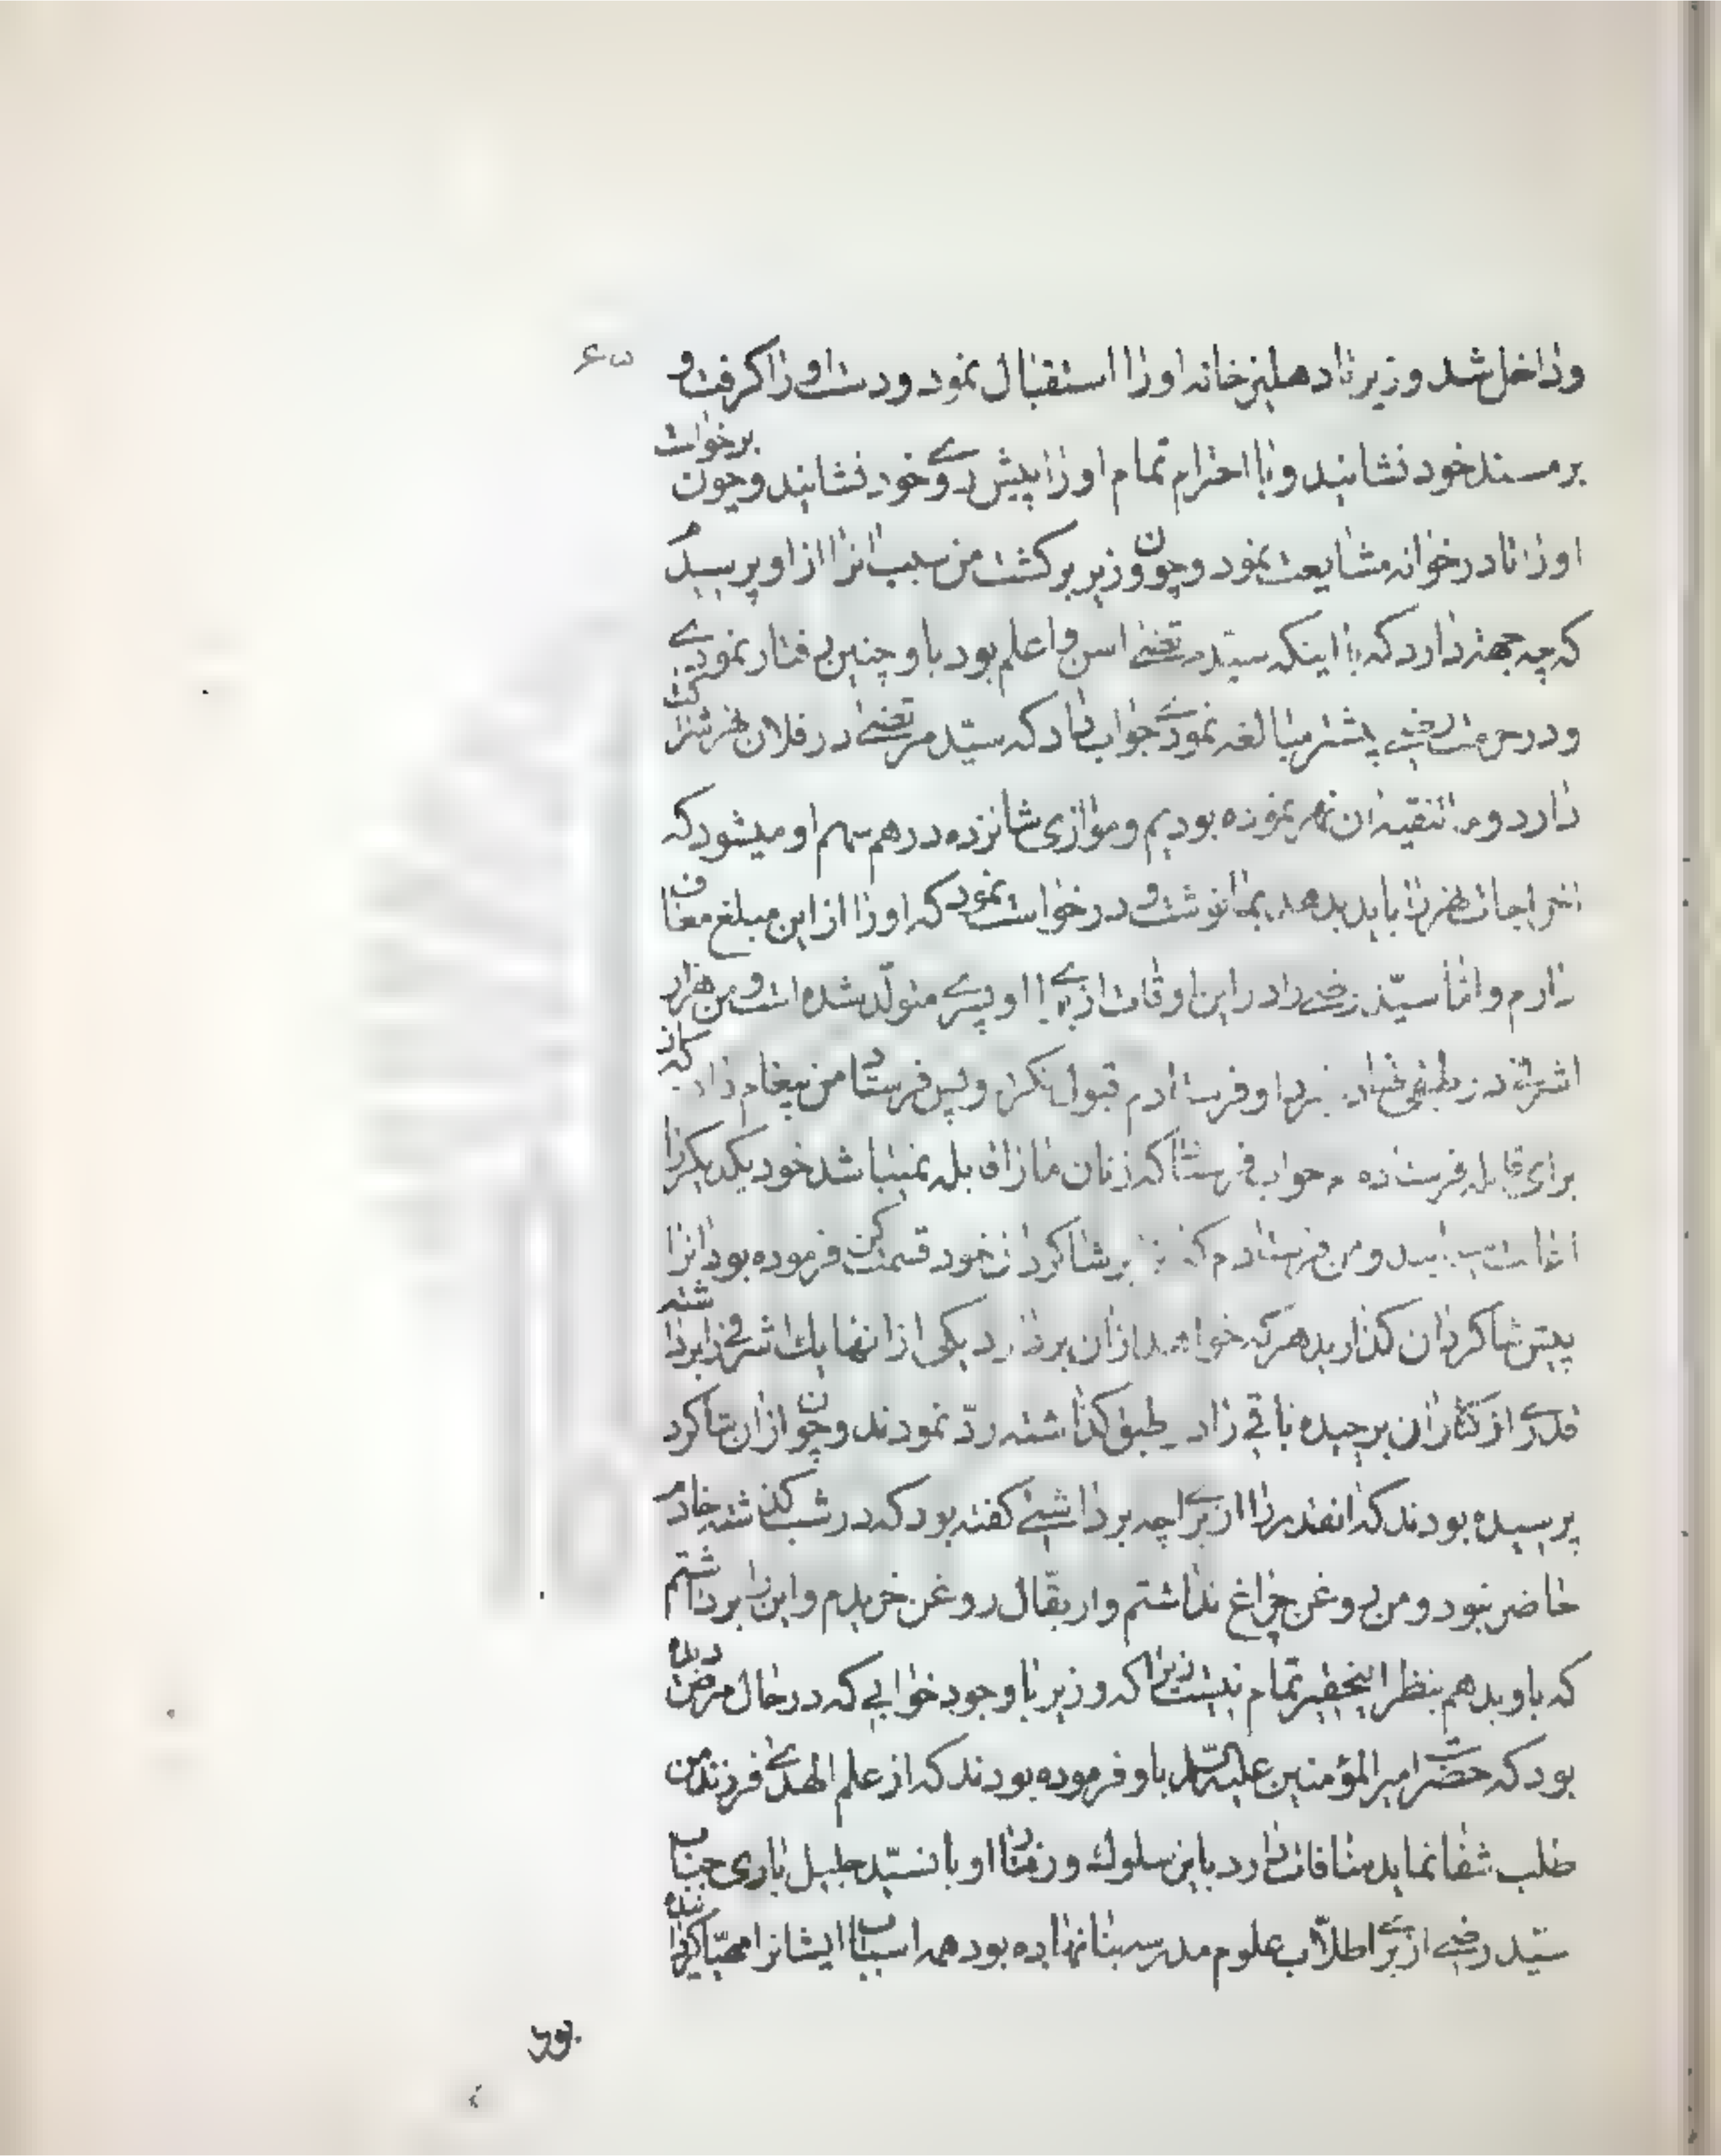 ۶۵
و داخل شد وزیر تا دهلیز خانه او را استقبال نمود و دست او را کرفت و
بر مسند خود نشانید و با احترام تمام او را پیش روی خود نشانید و چون برخواست
او را تا در خوانه مشایعت نمود و چون وزیر برکشت من سبب انرا از او پرسیدم
که چه جهة دارد که با اینکه سید مرتضی اسن و اعلم بود با او چنین رفتار نمودی
و در حرمت رضی بیشتر مبالغه نمودی جواب داد که سیّد مرتضی در فلان نهر شراکت
دارد و ما تنقیه ان نهر نموده بودیم و موازی شانزده درهم سهم او میشود که
اخراجات نهر را باید بدهد بما نوشت و درخواست نمود که او را از این مبلغ معاف
دارم و اما سیّد رضی را در این اوقات از برای او پسری متولّد شده است و من هزار
اشرفی در طبقی نزد او فرستادم قبول نکرد و پس فرستاد من پیغام داد که از
برای قابله فرستاده جواب فرستاد که زنان ما را قابله نمیباشد خود یکدیکر را
و من فرستادم که بر شاکردان خود قسمت کن فرموده بود انرا
پیش شاکردان کذارید هر که خواهد از ان بردارد یکی از انها یك اشرفی را برداشته
قدری از کنار ان برچیده باقی را در طبق کذاشته ردّ نمودند و چون از ان شاکرد
پرسیده بودند که انقدر را از برای چه برداشتی کفته بود که در شب کذشته خادم
حاضر نبود و من روغن چراغ نداشتم و از بقّال روغن خریدم و این را برداشتم
که باو بدهم بنظر اینحقیر تمام نیست زیرا که وزیر با وجود خوابی که در حال مرض دیده
بود که حضرت امیر المؤمنین علیه السّلام باو فرموده بودند که از علم الهدی فرزند من
طلب شفا نماید منافات دارد باین سلوك و رفتار او با نسیّد جلیل باری جناب
سیّد رضی از برای طلّاب علوم مدرسه بنا نهاده بود همه اسباب ایشانرا مهیّا کردانیده
بود